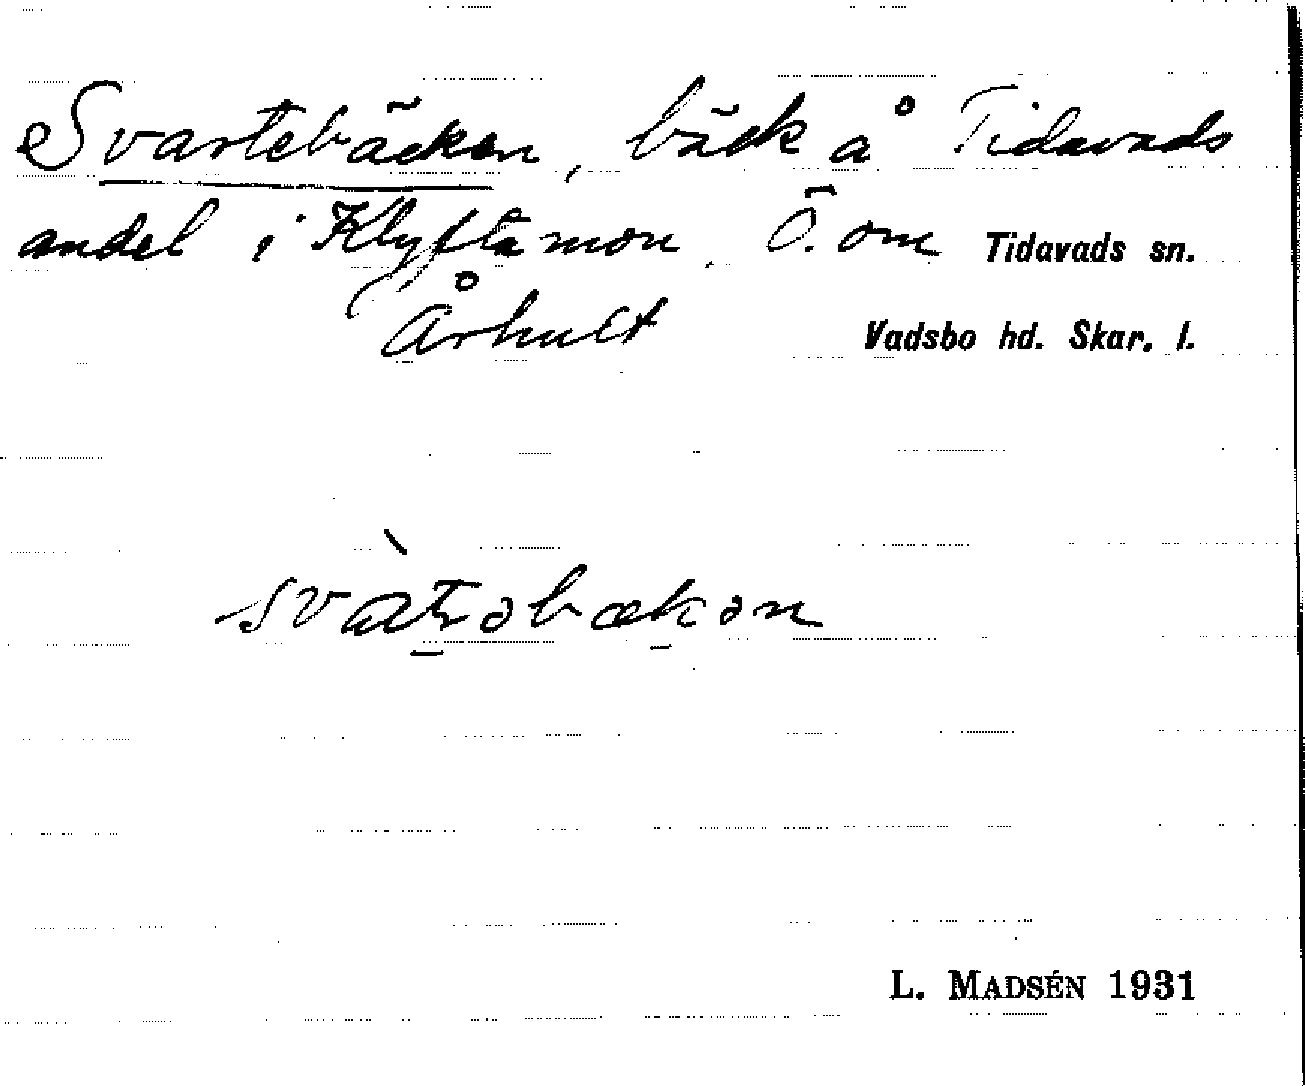 Svartebäcken, bäck å Tidavads
andel i Klyftamon. Ö. om Tidavads sn.
Århult Vadsbo hd. Skar. l.
L. MADSÉN 1931